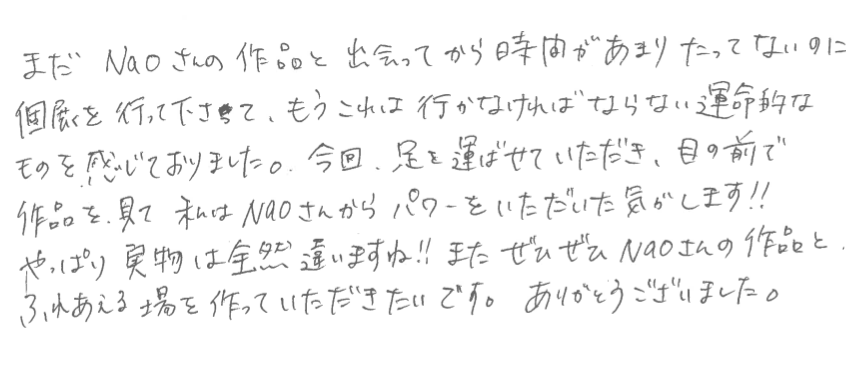 まだ Naoさんの作品と出会ってから時間があまりたってないのに
個展を行って下さって、もうこれは行かなければならない運命的な
ものを感じておりました。今回、足を運ばせていただき、目の前で
作品を見て私はNaoさんからパワーをいただいた気がします!!
やっぱり実物は全然違いますね!! またぜひぜひNaoさんの作品と
ふれあえる場を作っていただきたいです。ありがとうございました。